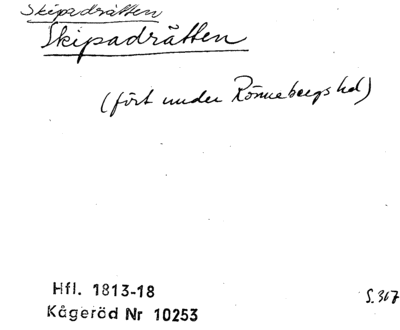 Skipadrätten
Skipadrätten
(fört under Rönnebergs hd)
Hfl. 1813-18
Kågeröd Nr 10253
S. 367